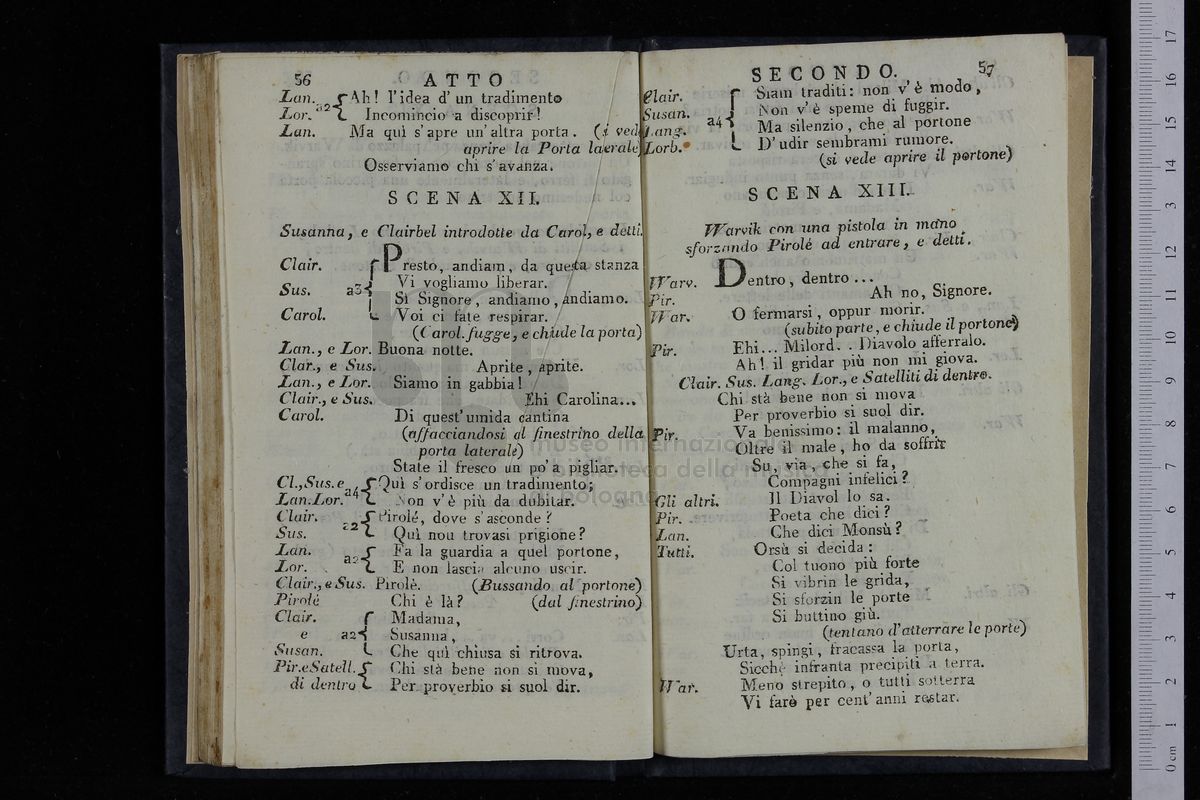 56 ATTO
Lan. Ah! l'idea d' un tradimento
Lor. a2 Incomincio a discoprir!
Lan. Ma quì s'apre un'altra porta. (si vede
aprire la Porta laerale)
Osserviamo chi s'avanza.
SCENA XII.
Susanna, e Clairbel introdotte da Carol, e detti.
Clair. Presto, andiam, da questa stanza
Vi vogliamo liberar.
Sus. a3 Sì Signore, andiamo, andiamo.
Carol. Voi ci fate respirar.
(Carol. fugge, e chiude la porta)
Lan., e Lor. Buona notte.
Clar., e Sus. Aprite, aprite.
Lan., e Lor. Siamo in gabbia!
Clair., e Sus. Ehi Carolina...
Carol. Di quest' umida cantina
(affacciandosi al finestrino della
porta laterale)
State il fresco un po' a pigliar.
Cl., Sus. e Quì s'ordisce un tradimento;
Lan. Lor. a4 Non v'è più da dubitar.
Clair. Pirolé, dove s'asconde?
Sus. a2 Quì nou trovasi prigione?
Lan. Fa la guardia a quel portone,
Lor. a2 E non lascia alcuno uscir.
Clair., e Sus. Pirolè. (Bussando al portone)
Pirolé Chi è là? (dal finestrino)
Clair. Madama,
e a2 Susanna,
Susan. Che quì chiusa si ritrova.
Pir. e Satell. Chi stà bene non si mova,
di dentro Per proverbio si suol dir.
SECONDO. 57
Clair. Siam traditi: non v'è modo,
Susan. Non v'è speme di fuggir.
Lang. a4 Ma silenzio, che al portone
Lorb. D' udir sembrami rumore.
(si vede aprire il portone)
SCENA XIII.
Warvik con una pistola in mano
sforzando Pirolé ad entrare, e detti.
Warv. Dentro, dentro...
Pir. Ah no, Signore.
War. O fermarsi, oppur morir.
(subito parte, e chiude il portone)
Pir. Ehi... Milord. . Diavolo afferralo.
Ah! il gridar più non mi giova.
Clair. Sus. Lang. Lor., e Satelliti di dentro.
Chi stà bene non si mova
Per proverbio si suol dir.
Pir. Va benissimo: il malanno,
Oltre il male, ho da soffrir
Su, via, che si fa,
Compagni infelici?
Gli altri. Il Diavol lo sa.
Pir. Poeta che dici?
Lan. Che dici Monsù?
Tutti. Orsù si decida:
Col tuono più forte
Si vibrin le grida,
Si sforzin le porte
Si buttino giù.
(tentano d'atterrare le porte)
Urta, spingi, fracassa la porta,
Sicchè infranta precipiti a terra.
War. Meno strepito, o tutti sotterra
Vi farò per cent' anni restar.
museo internazionale
e biblioteca della musica
di bologna
0 cm 1 2 3 4 5 6 7 8 9 10 11 12 13 14 15 16 17